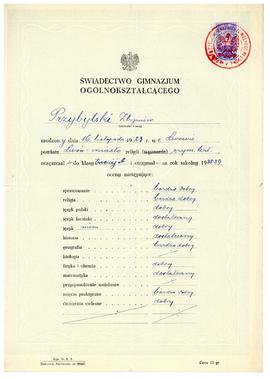 ŚWIADECTWO GIMNAZJUM
OGÓLNOKSZTAŁCĄCEGO
Przybylski Zbigniew
urodzony dn. 16 listopada 1923 w Lwowie
powiatu Lwów-miasto religii (wyznania) rzym. kat.
uczęszczał do klasy i otrzymał za rok szkolny 1938/39
oceny następujące:
sprawowanie bardzo dobry
religia bardzo dobry
język polski dobry
język łaciński dostateczny
język niem. dobry
historia dostateczny
geografia bardzo dobry
biologia
fizyka i chemia dobry
matematyka dostateczny
przysposobienie wojskowe
zajęcia praktyczne bardzo dobry
ćwiczenia cielesne dobry
Cena 15 gr.